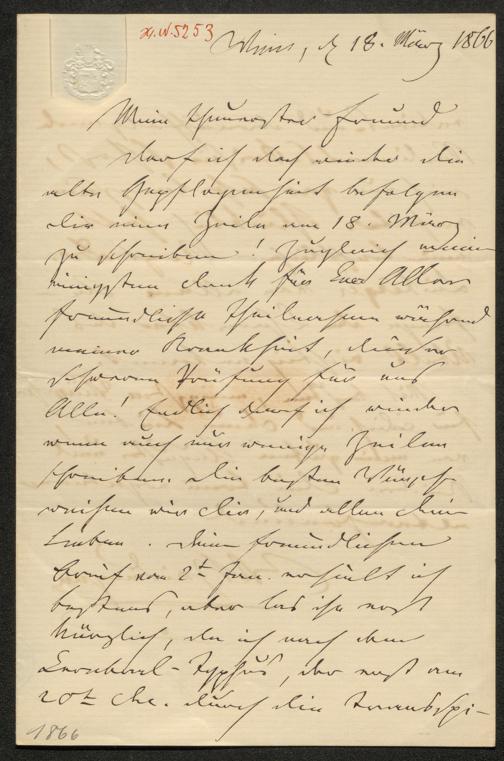 H.I.N. 5253
Wien, d 18. März 1866
Mein theuerster Freund
darf ich doch wieder die
alte Gepflogenheit befolgen
dir eine Zeile am 18. März
zu schreiben! Zugleich meinen
innigsten Dank für Euer Aller
freundliche Theilnahme während
meiner Krankheit, dieser
schweren Prüfung für uns
Alle! Endlich darf ich wieder
wenn auch nur wenige Zeilen
schreiben. Die besten Wünsche
weihen wir dir, und allen dein
Lieben. Deinen freundlichen
Brief vom 2t Jan. erhielt ich
bestens, aber las ihn erst
kürzlich, da ich nach dem
Typhus, der erst am
20t durch die
1866